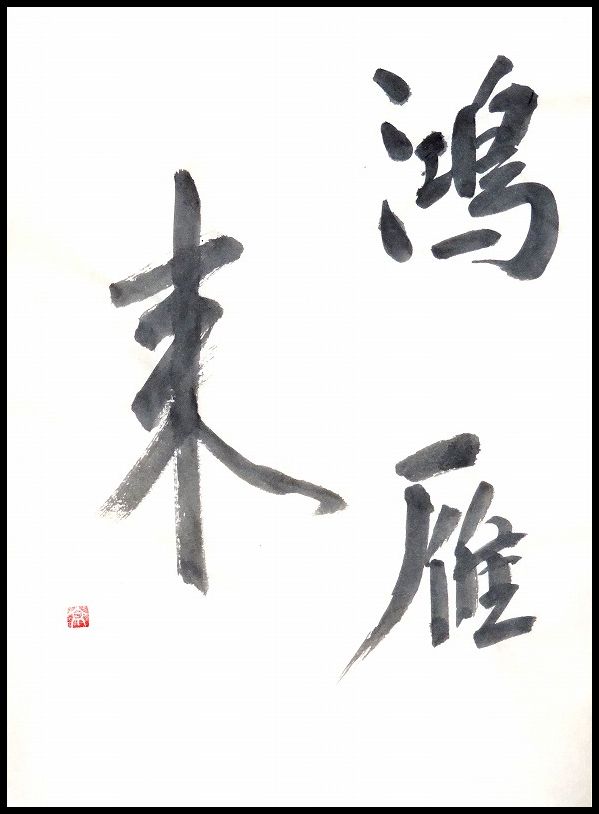 鴻雁
来